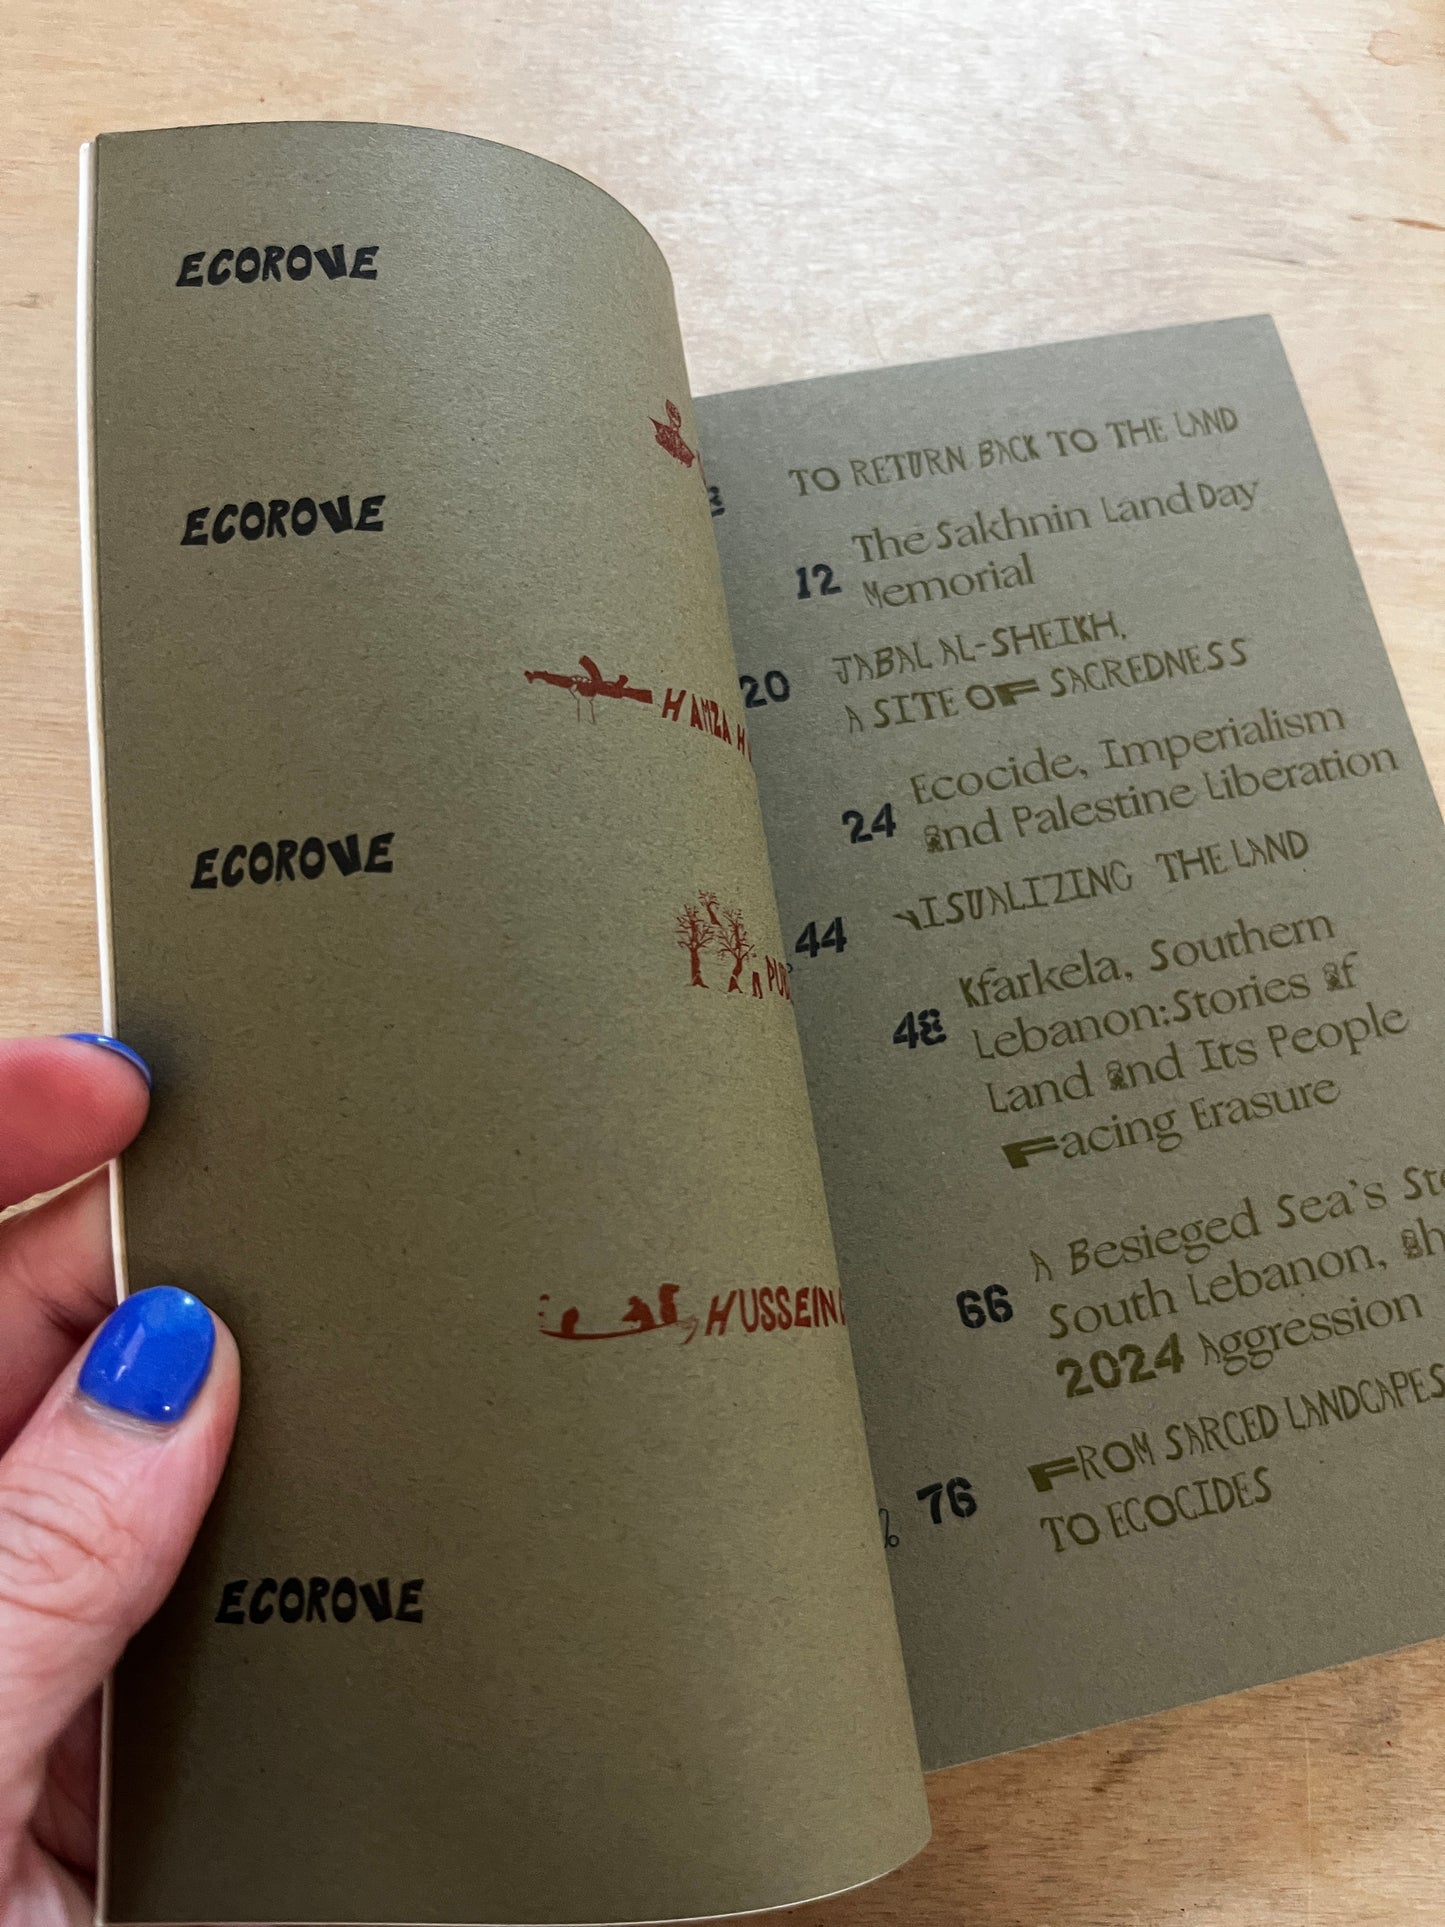 ECOROVE
ECOROVE
HAMZA
ECOROVE
HUSSEIN
ECOROVE
TO RETURN BACK TO THE LAND
12 The Sakhnin Land Day
Memorial
20 JABAL AL-SHEIKH,
A SITE OF SACREDNESS
24 Ecocide, Imperialism
and Palestine Liberation
44 VISUALIZING THE LAND
48 Kfarkela, Southern
Lebanon: Stories of
Land and Its People
Facing Erasure
66 A Besieged Sea's
South Lebanon,
2024 Aggression
76 FROM SARCED LANDCAPES
TO ECOCIDES